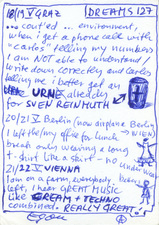 18/19 V GRAZ DREAMS 127
... cont'd ... environment,
when i get a phone call with
"carlos" telling my numbers
i am NOT able to understand/
write down correctly and carlos
telling me i better get an
URNE already
for SVEN REINMUTH
20/21 V Berlin (now airplane Berlin
→ WIEN)
i left the/my office for lunch
break only wearing a long
t-shirt like a skirt - no underwear
21/22 V VIENNA
i am on a farm, everybody
left, i hear GREAT MUSIC
like CREAM + TECHNO
combined. REALLY GREAT!